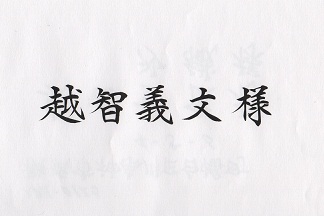 越智義文様